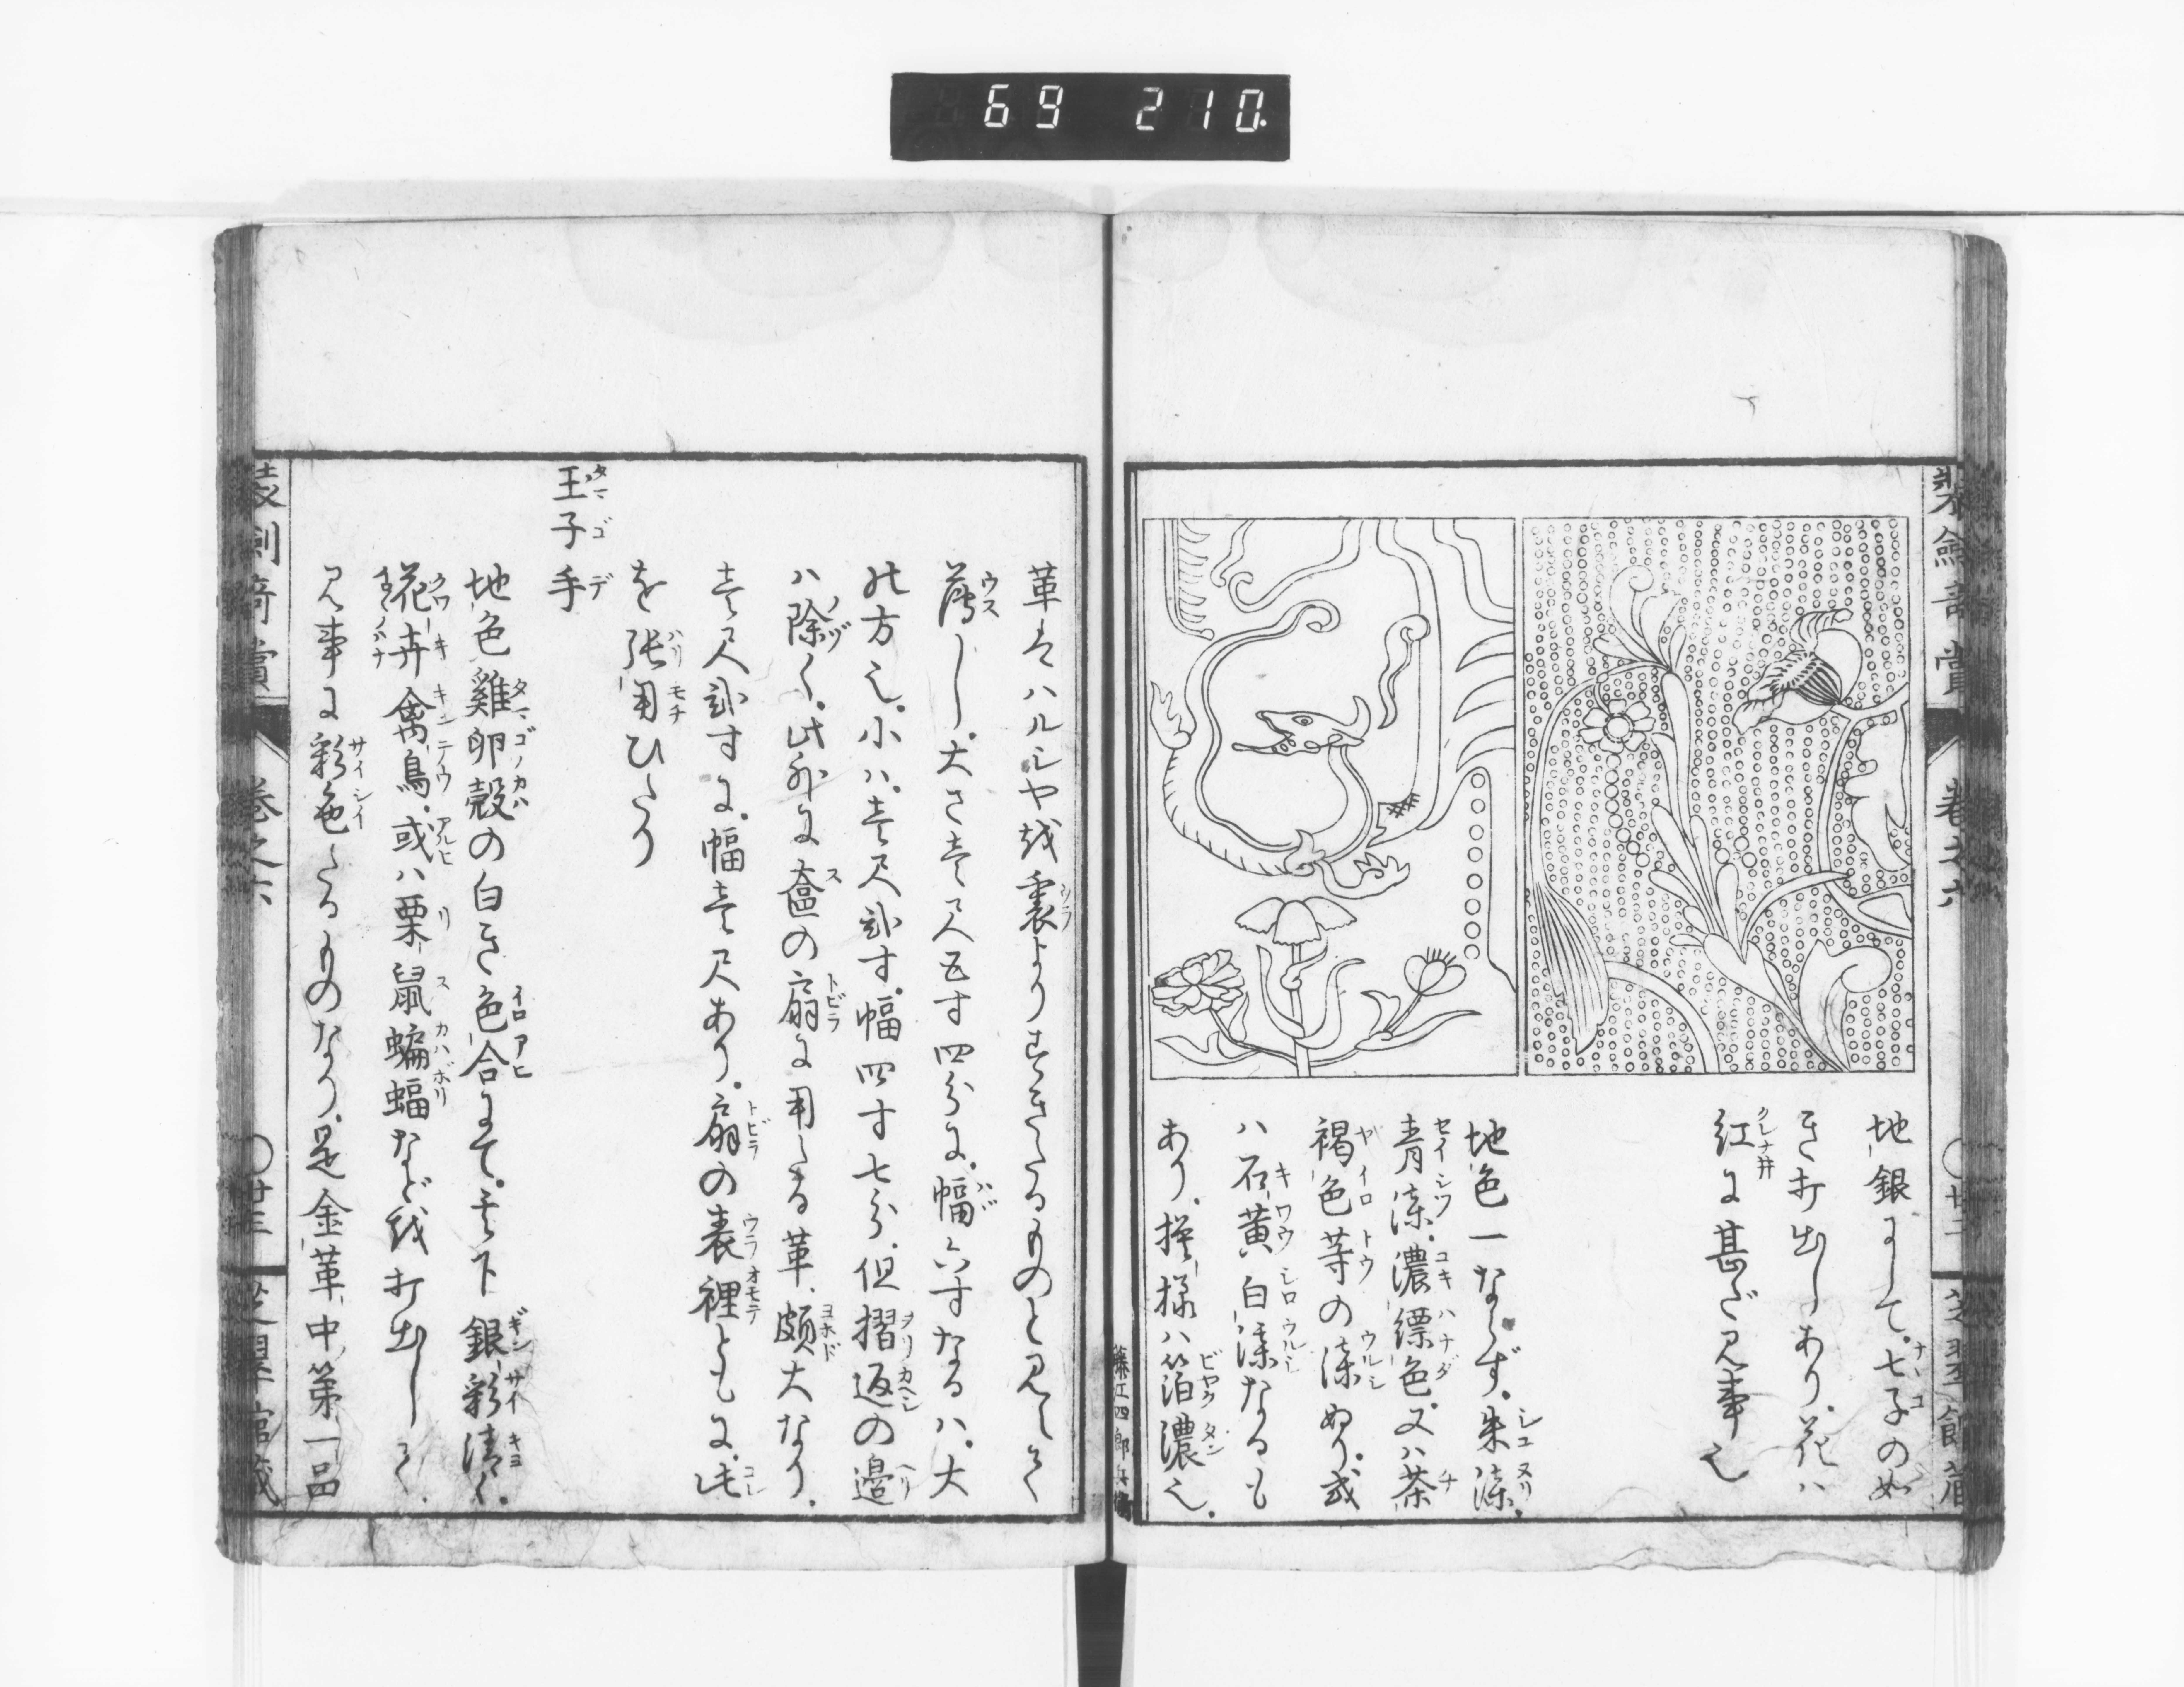 69 210.
装劔奇賞
巻之六
〇廿二
芝翠館蔵
地銀にして、七子の如
き打出しあり。花ハ
紅に甚だ見事也
地色一ならず。朱漆。
青漆。濃縹色。又ハ茶
褐色等の漆ぬり。或
ハ石黄白漆なるも
あり。摸様ハ箔濃也。
藤江四郎兵衛
革をハルシや或裏よりすきたるものと見へて
薄し。大さ壱尺五寸四分に。幅六寸なるハ。大
の方也。小ハ。壱尺計寸。幅四寸七分。但摺返の邉
ハ除く。此外に奩の扇に用たる革、頗大なり。
壱尺計寸に。幅壱尺あり。扇の表裡ともに。此
を張用ひたり
玉子手
地色雞卵殻の白き色合にて。其下銀彩清く。
花卉禽鳥。或ハ栗鼠蝙蝠など或打出して。
見事に彩色たるものなり。是金革中第一品
装劔奇賞
巻之六
〇廿三
芝翠館蔵